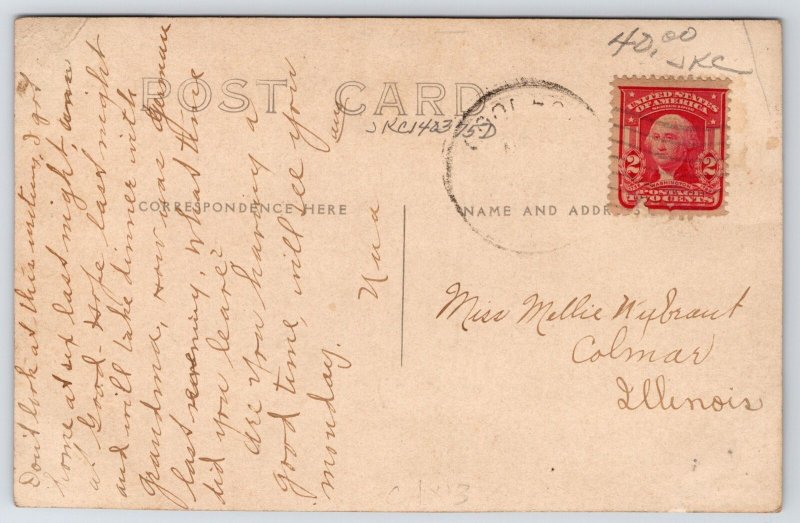 40.00
JKC
POST CARD
JKC1423 75D
CORRESPONDENCE HERE
NAME AND ADDRESS
UNITED STATES
OF AMERICA
2 2
WASHINGTON
POSTAGE
TWO CENTS
Miss Mellie Wybrant
Colmar
Illinois
Don't look at this writing, I got
home at six last night, was
at Good-Hope last night
and will take dinner with
grandma, now was
last evening, What time
did you leave?
are you having a
good time, will see you
monday.